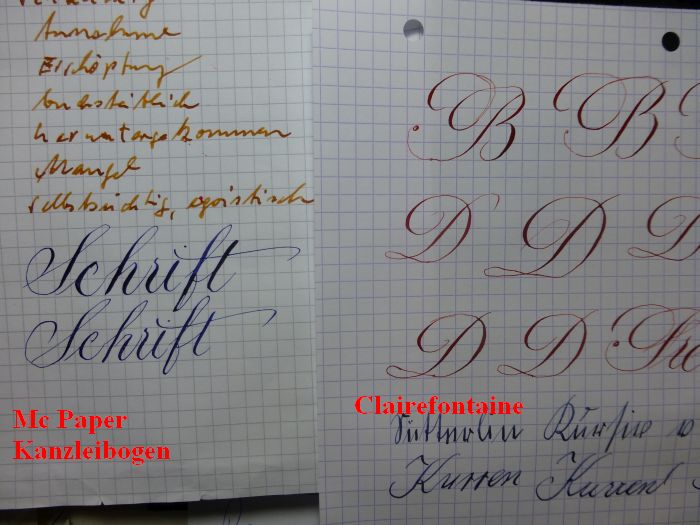 Annahme
Erschöpfung
buchstäblich
heruntergekommen
Mangel
selbstsüchtig, egoistisch
Schrift
Schrift
Mc Paper
Kanzleibogen
B B
D D D
D D
Clairefontaine
Sütterlin Kursiv
Kurren Kurrent